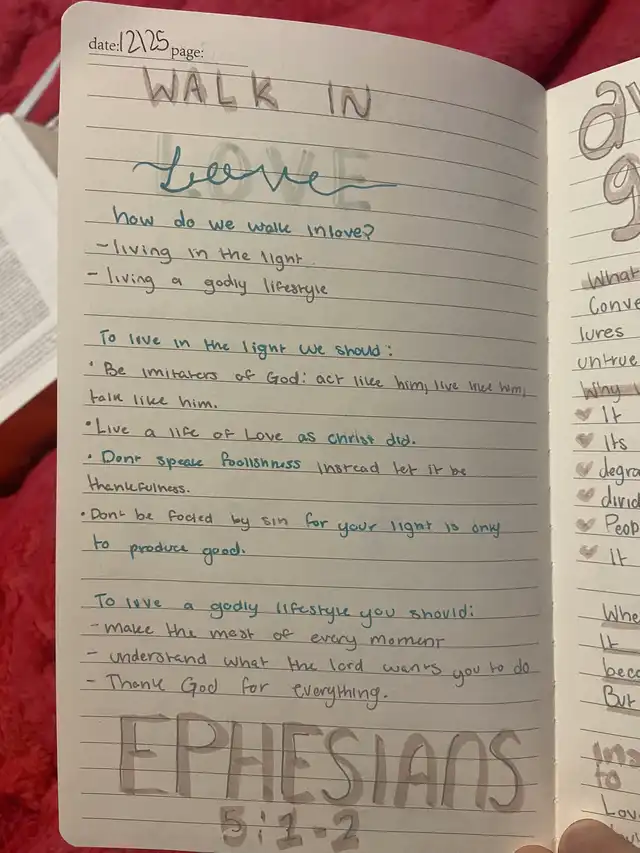 date: 12\25 page:
WALK IN
LOVE
Love
how do we walk in love?
- living in the light
- living a godly lifestyle
To live in the light we should:
• Be imitaters of God: act like him, live like him,
talk like him.
• Live a life of Love as Christ did.
• Dont speak foolishness instead let it be
thankfulness.
• Dont be fooled by sin for your light is only
to produce good.
To live a godly lifestyle you should:
- make the most of every moment
- understand what the lord wants you to do
- Thank God for everything.
EPHESIANS
5:1-2
What
Conve
lures
untrue
Why
It
Its
degra
divid
Peop
it
Whe
It
beca
But
Ins
to
Lov